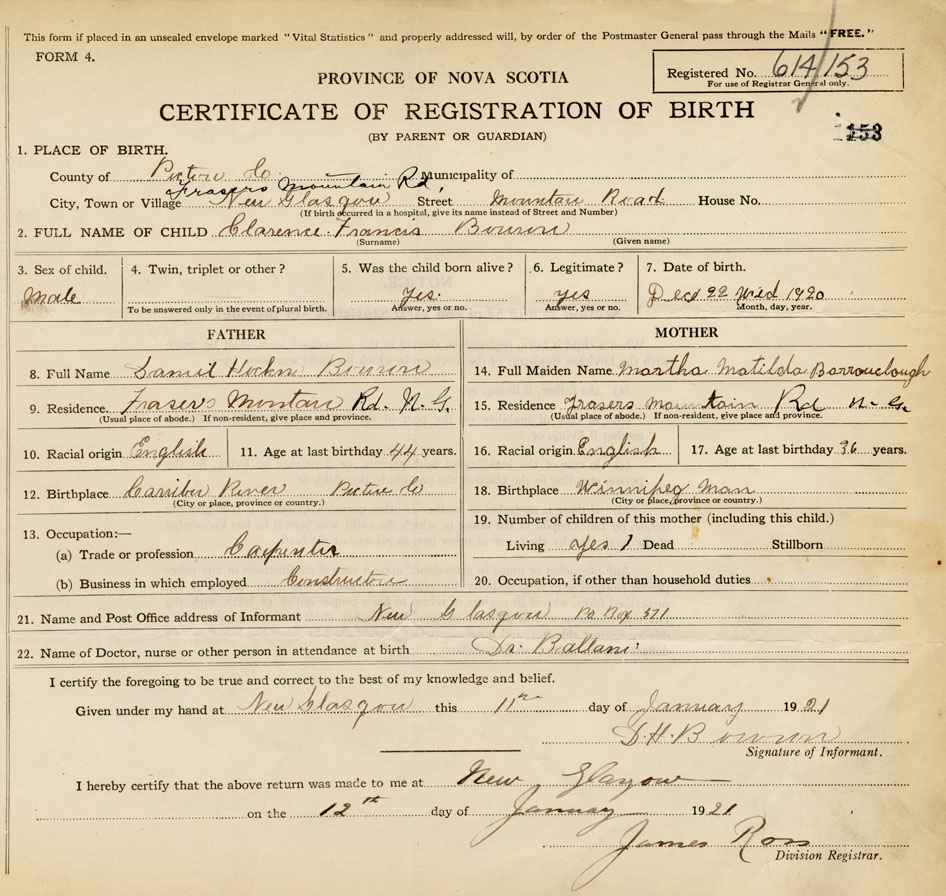 This form if placed in an unsealed envelope marked "Vital Statistics" and properly addressed will, by order of the Postmaster General pass through the Mails "FREE."
FORM 4.
Registered No. 614/153
For use of Registrar General only.
PROVINCE OF NOVA SCOTIA
CERTIFICATE OF REGISTRATION OF BIRTH
(BY PARENT OR GUARDIAN)
153
1. PLACE OF BIRTH.
County of Pictou Co. Municipality of
Frasers Mountain Rd,
City, Town or Village New Glasgow Street Mountan Road House No.
(If birth occurred in a hospital, give its name instead of Street and Number)
2. FULL NAME OF CHILD Clarence Francis
(Surname) (Given name)
3. Sex of child. 4. Twin, triplet or other? 5. Was the child born alive? 6. Legitimate? 7. Date of birth.
Male Yes. yes Dec 22 Wed 1920
To be answered only in the event of plural birth. Answer, yes or no. Answer, yes or no. Month, day, year.
FATHER MOTHER
8. Full Name 14. Full Maiden Name Martha Matilda Barrouclough
9. Residence Fraser's Montan Rd. N. G. 15. Residence Frasers mountain Rd N. G.
(Usual place of abode.) If non-resident, give place and province. (Usual place of abode.) If non-resident, give place and province.
10. Racial origin English 11. Age at last birthday 44 years. 16. Racial origin English 17. Age at last birthday 36 years.
12. Birthplace Carribu River Pictou Co 18. Birthplace Winnipeg Man
(City or place, province or country.) (City or place, province or country.)
13. Occupation:— 19. Number of children of this mother (including this child.)
(a) Trade or profession Carpenter Living yes 1 Dead Stillborn
(b) Business in which employed 20. Occupation, if other than household duties
21. Name and Post Office address of Informant New Glasgow Po Box 571
22. Name of Doctor, nurse or other person in attendance at birth Dr.
I certify the foregoing to be true and correct to the best of my knowledge and belief.
Given under my hand at New Glasgow this 11th day of January 1921
D. H.
Signature of Informant.
I hereby certify that the above return was made to me at New Glasgow
on the 12th day of January 1921
James Ross
Division Registrar.